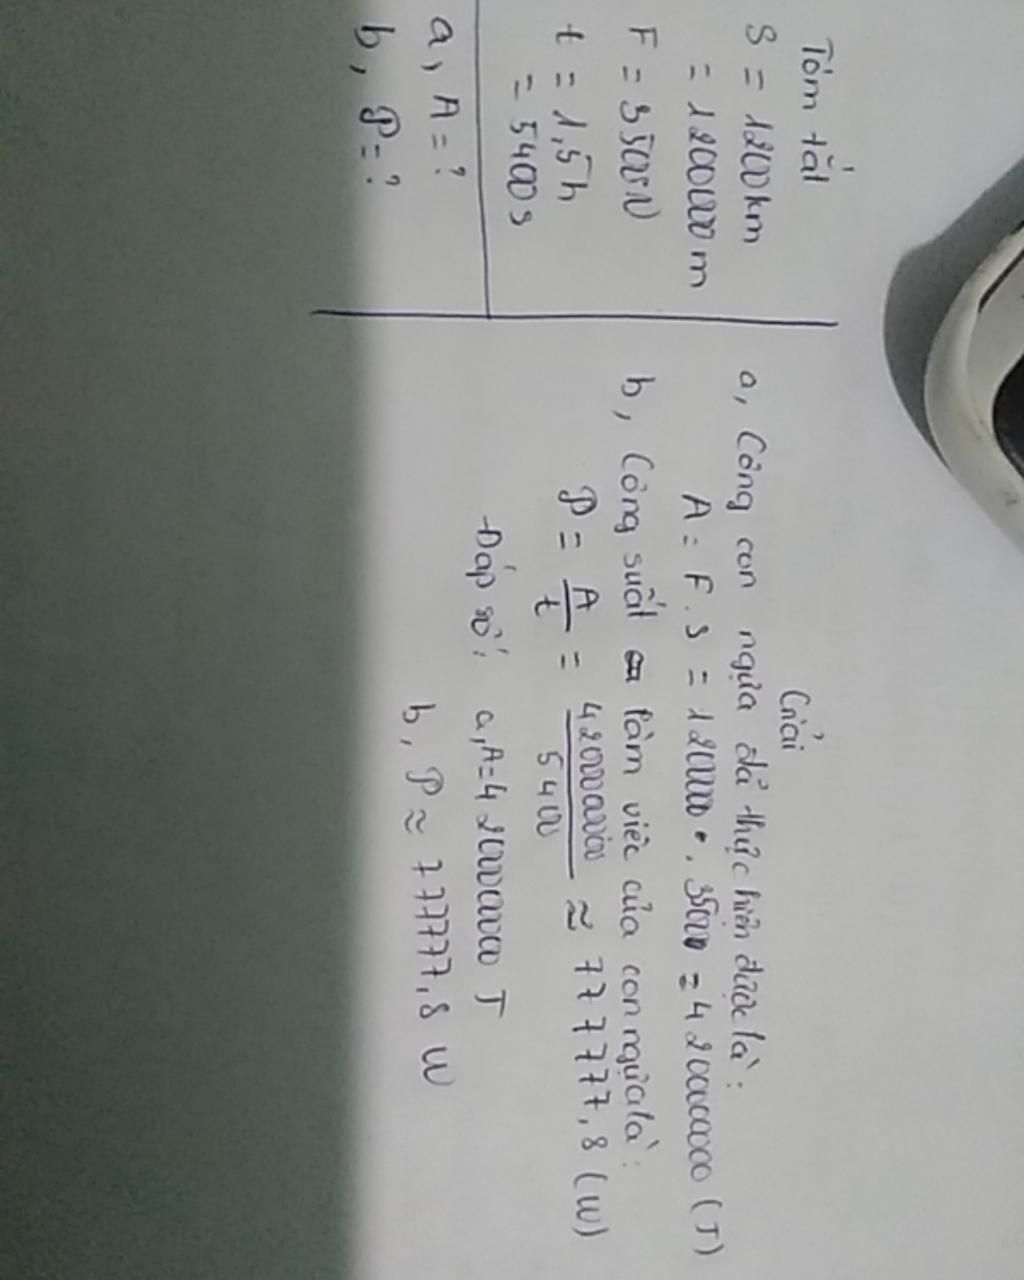 Tóm tắt
S = 1200km
= 1200000 m
F = 3500N
t = 1,5h
= 5400s
a, A = ?
b, P = ?
Giải
a, Công con ngựa đã thực hiện được là:
A = F . S = 1200000 . 3500 = 4200000000 (J)
b, Công suất làm việc của con ngựa là:
P = A/t = 4200000000/5400 ≈ 777777,8 (W)
Đáp số: a, A = 4200000000 J
b, P ≈ 777777,8 W